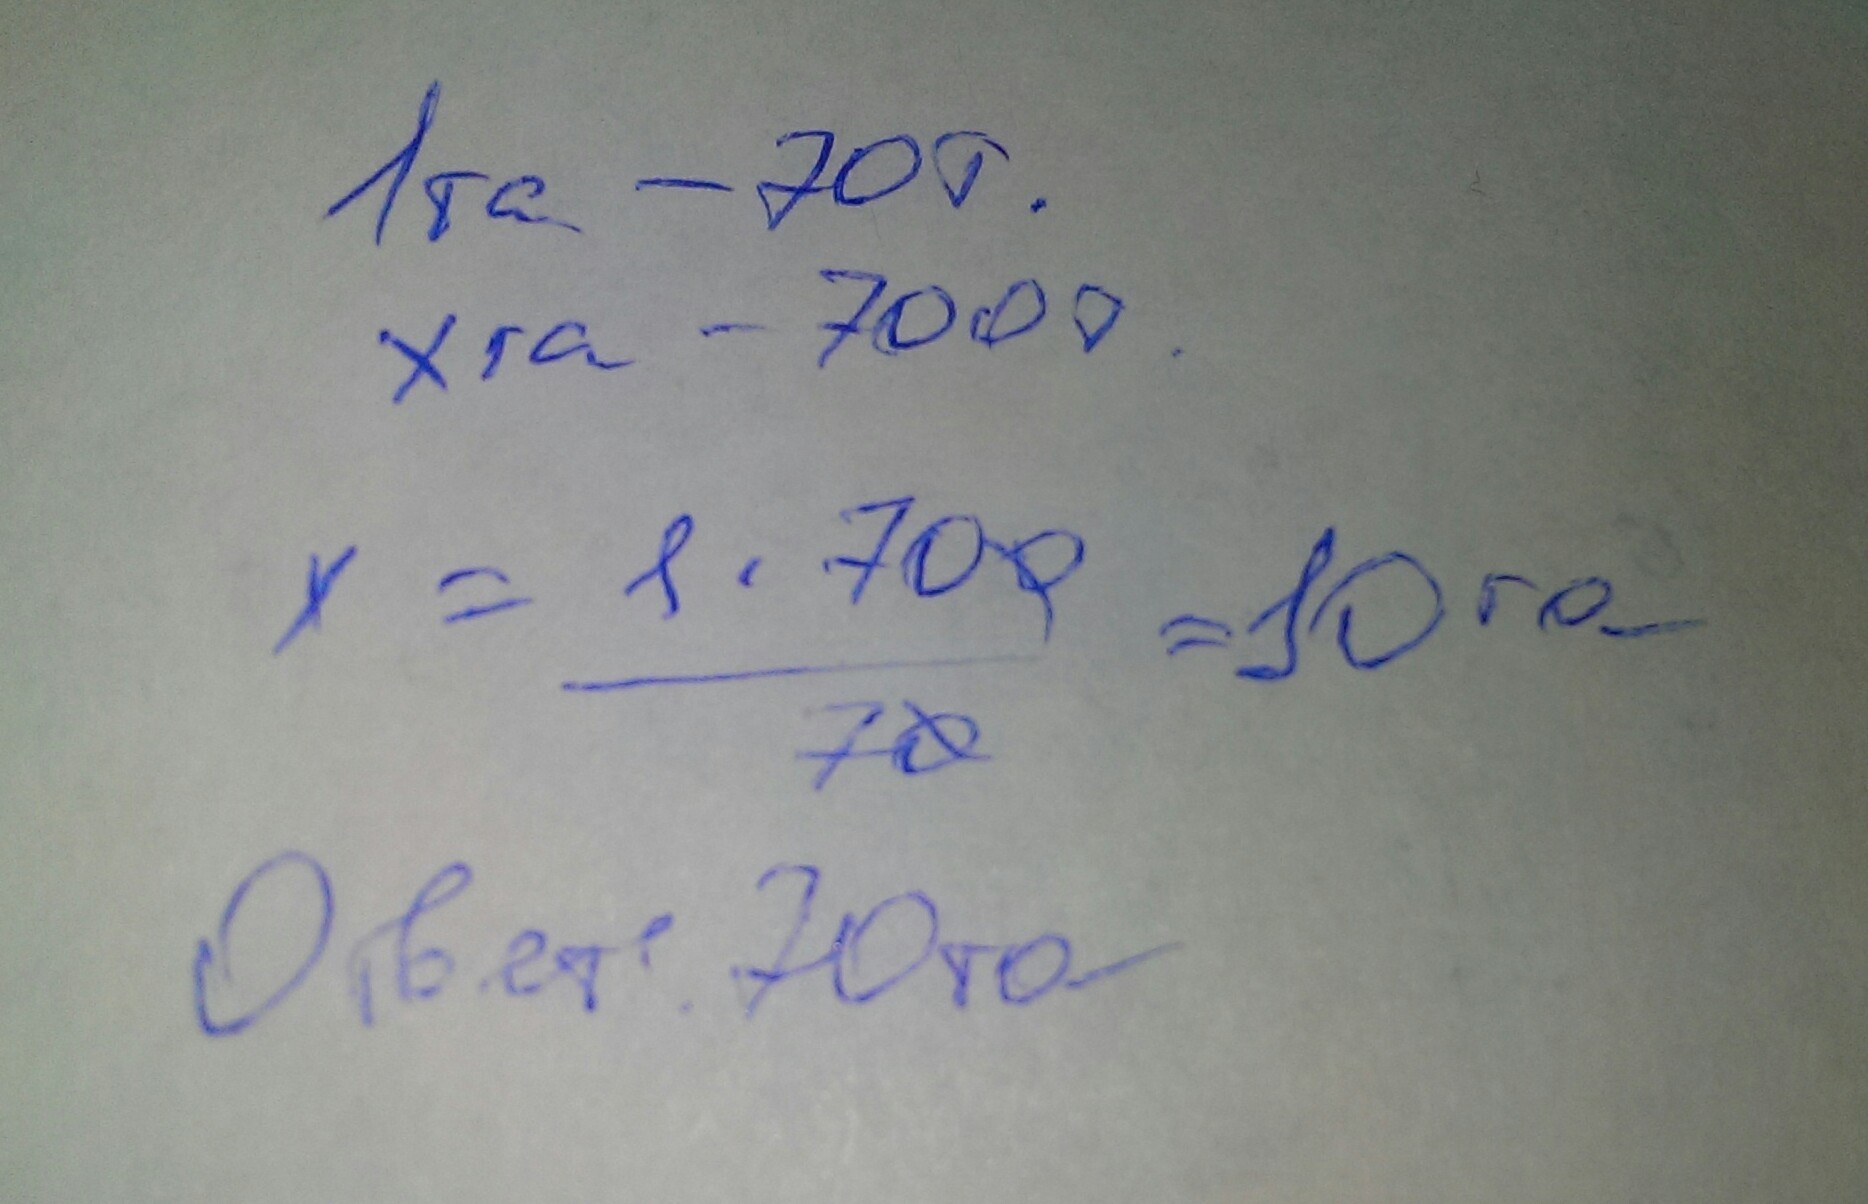 1га - 70т.
х га - 700т.
х = 1 · 700 / 70 = 10 га
Ответ: 70га